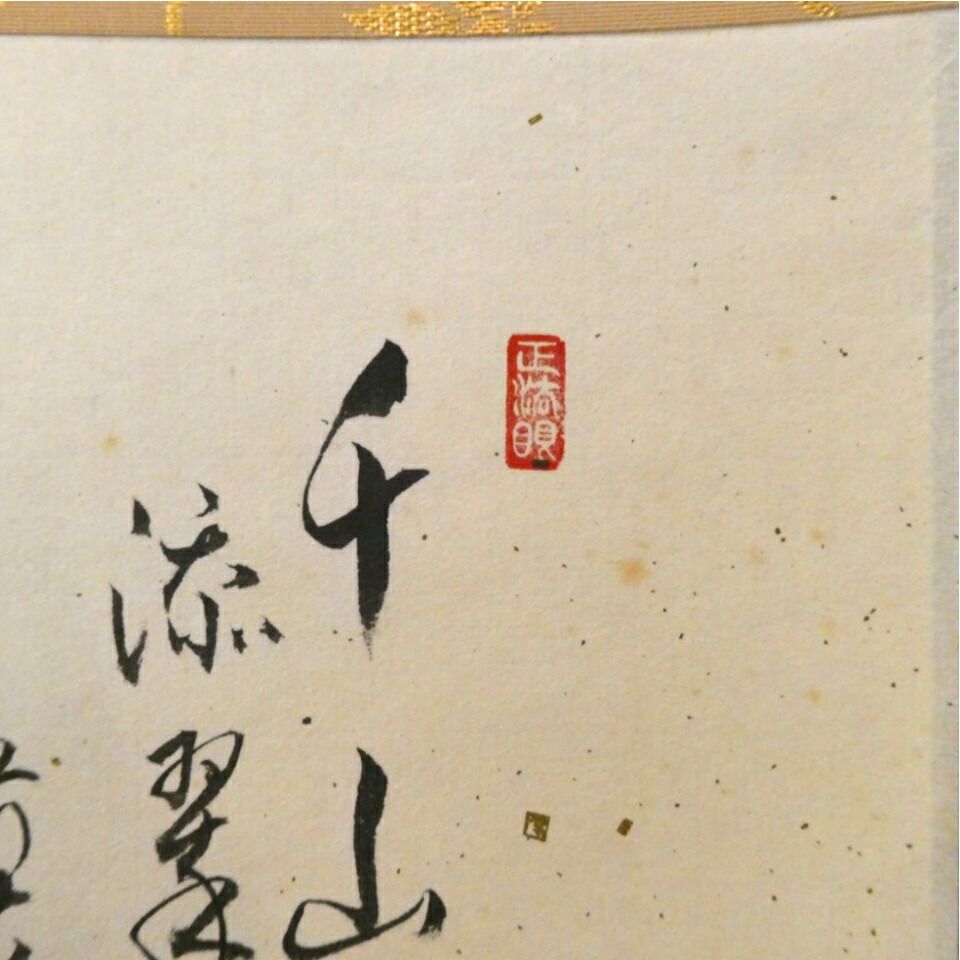 正法眼
千山
添翠